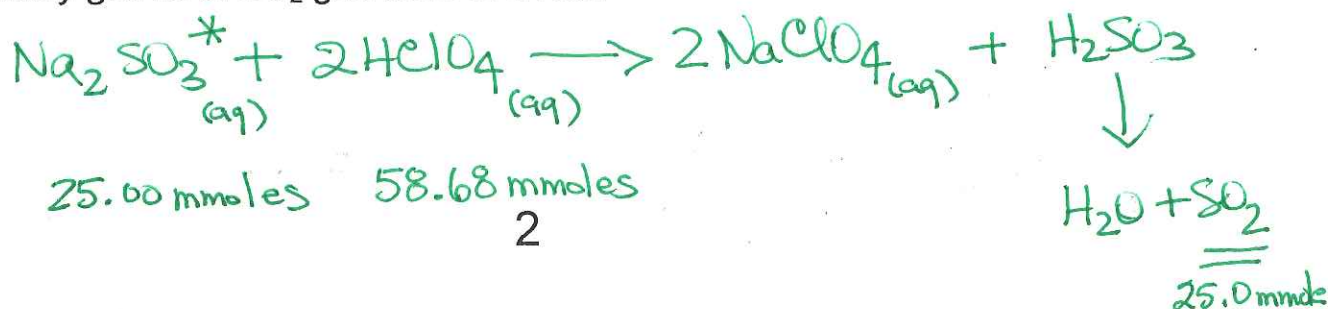 Na₂SO₃*(aq) + 2HClO₄(aq) → 2NaClO₄(aq) + H₂SO₃
↓
25.00 mmoles 58.68 mmoles
H₂O + SO₂
2
25.0 mmole